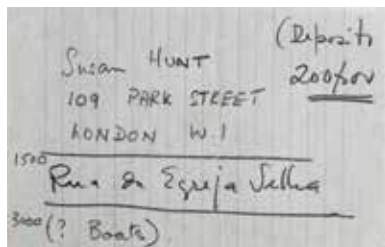 (Deposit
Susan HUNT
200/00
109 PARK STREET
LONDON W.1
1500
Rua da Egreja Velha
3000 (? Boats)